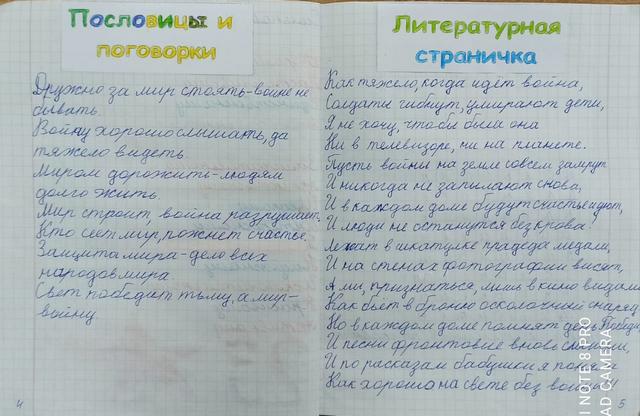 Пословицы и
поговорки
Дружно за мир стоять-войне не
бывать.
Войну хорошо слышать, да
тяжело видеть.
Миром дорожить-людям
долго жить.
Мир строит, война разрушает.
Кто сеет мир, пожнет счастье.
Защита мира-дело всех
народов мира.
Свет победит тьму, а мир-
войну
4
Литературная
страничка
Как тяжело, когда идёт война,
Солдаты гибнут, умирают дети,
Я не хочу, чтобы была она
Ни в телевизоре, ни на планете.
Пусть войны на земле совсем замрут
И никогда не запылают снова,
И в каждом доме будут счастье
И люди не останутся без крова!
Лежат в шкатулке прадеда медали,
И на стенах фотографии висят,
А мы, признаться, лишь в кино видали
Как бьёт в броню осколочный снаряд
Но в каждом доме помнят день Победы
И песни фронтовые вновь
И по рассказам бабушки я понял
Как хорошо на свете без войны!
5
I NOTE 8 PRO
AD CAMERA